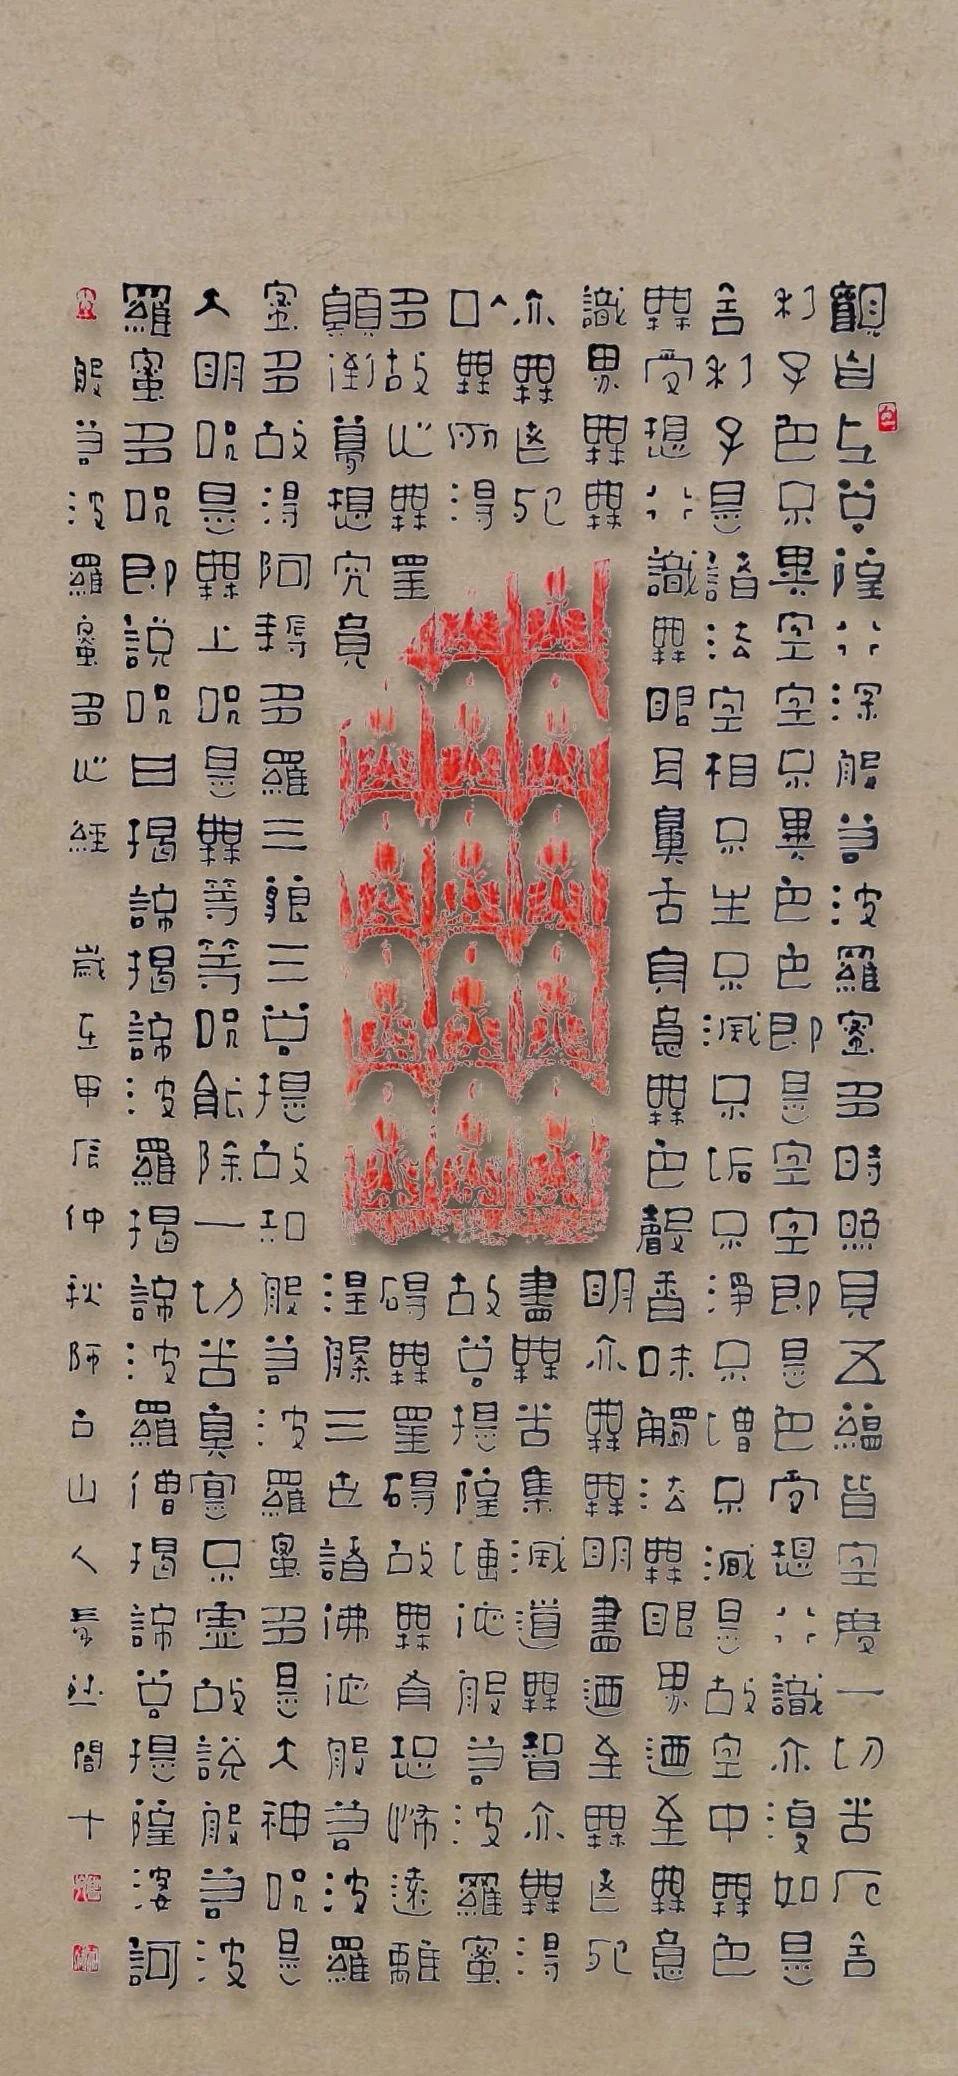 觀自在菩薩行深般若波羅蜜多時照見五蘊皆空度一切苦厄舍
利子色不異空空不異色色即是空空即是色受想行識亦復如是
舍利子是諸法空相不生不滅不垢不淨不增不減是故空中無色
無受想行識無眼耳鼻舌身意無色聲香味觸法無眼界乃至無意
識界無無明亦無無明盡乃至無老死
亦無老死盡無苦集滅道無智亦無得
以無所得故菩提薩埵依般若波羅蜜
多故心無罣礙無罣礙故無有恐怖遠離
顛倒夢想究竟涅槃三世諸佛依般若波羅
蜜多故得阿耨多羅三藐三菩提故知般若波羅蜜多是大神咒是
大明咒是無上咒是無等等咒能除一切苦真實不虛故說般若波
羅蜜多咒即說咒曰揭諦揭諦波羅揭諦波羅僧揭諦菩提薩婆訶
般若波羅蜜多心經 歲在甲辰仲秋師山人